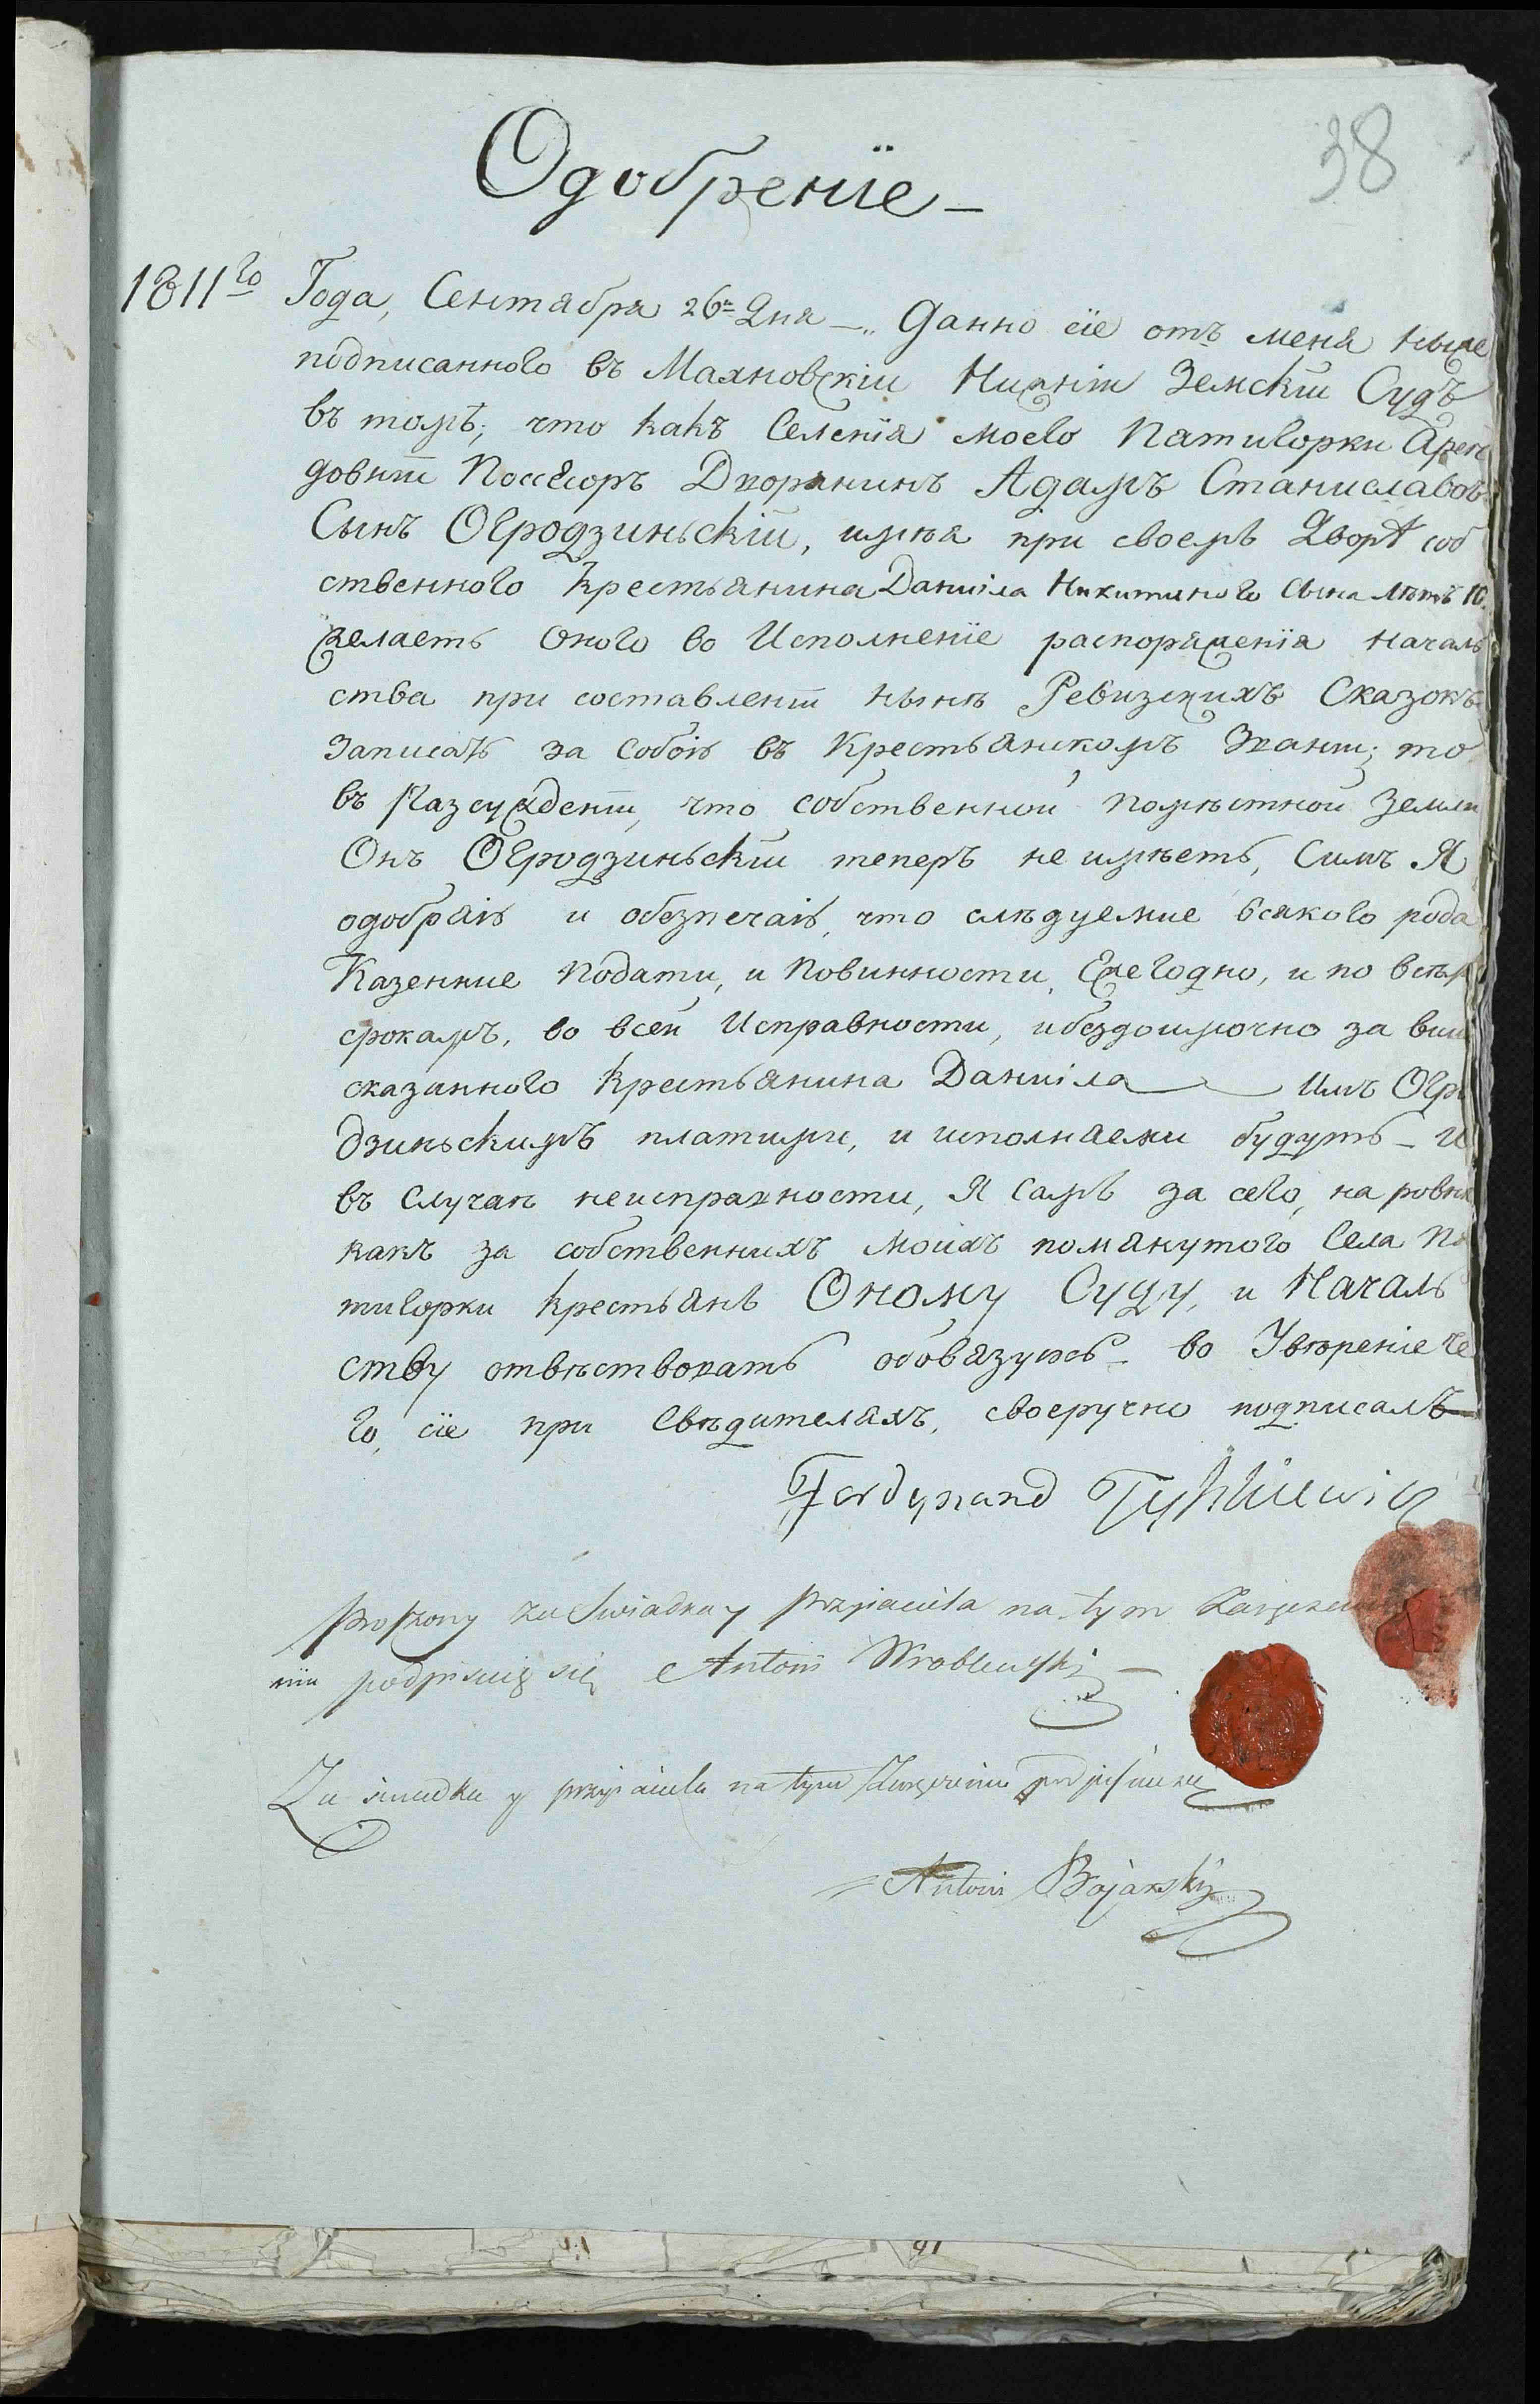 38
Одобренїе –
1811го Года, Сентября 26го Дня –„ Данно сїе отъ меня ниже
подписанного въ Махновскїй Нижнїй Земскїй Судъ
въ томъ; что какъ Селенїя моего Пятигорки Арен
довнїй Поссесоръ Дворянинъ Адамъ Станиславовъ
Сынъ Огродзиньскїй, имѣя при своемъ Дворѣ соб
ственного Крестьянина Данїила Никитиного Сына лѣтъ 10.
желаетъ Оного во Исполненїе распоряженїя Началь
ства при составленїи нынѣ Ревизскихъ Сказокъ
Записать за Собою въ Крестьянскомъ Званїи; то
въ Разсужденїи, что собственной помѣстной Земли
Онъ Огродзиньскїй теперъ не имѣетъ, Симъ Я
одобряю и обезпечаю, что слѣдуемие всякого рода
Казенние Подати, и Повинности, Ежегодно, и по всѣмъ
срокамъ, во всей Исправности, и бездоимочно за выш
сказанного Крестьянина Данїила Имъ Огро
дзиньскимъ платими, и исполняеми будутъ – И
въ Случаѣ неисправности, Я Самъ за сего, на ровнѣ
какъ за собственнихъ Моихъ помянутого Села Пя
тигорки Крестьянъ Оному Суду, и Началь
ству отвѣствовать обовязуюсь – во Увѣренїе че
го, сїе при Свѣдителяхъ, своеручно подписалъ
Ferdynand Tyszkiewicz
Proszony za Swiadka y Przyiaciela na tym Zaręcze
niu podpisuię się Antoni Wroblewski –
Za swiadka y przyiaciela na tym Zaręczeniu podpisuie
Antoni Bojarski